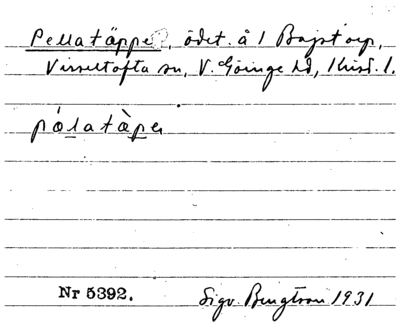 Pellatäppe, ödet. å 1 Bajstorp,
Visseltofta sn, V. Göinge hd, Krist. l.
pälatàpen
Nr 5392. Sigv. Bengtson 1931